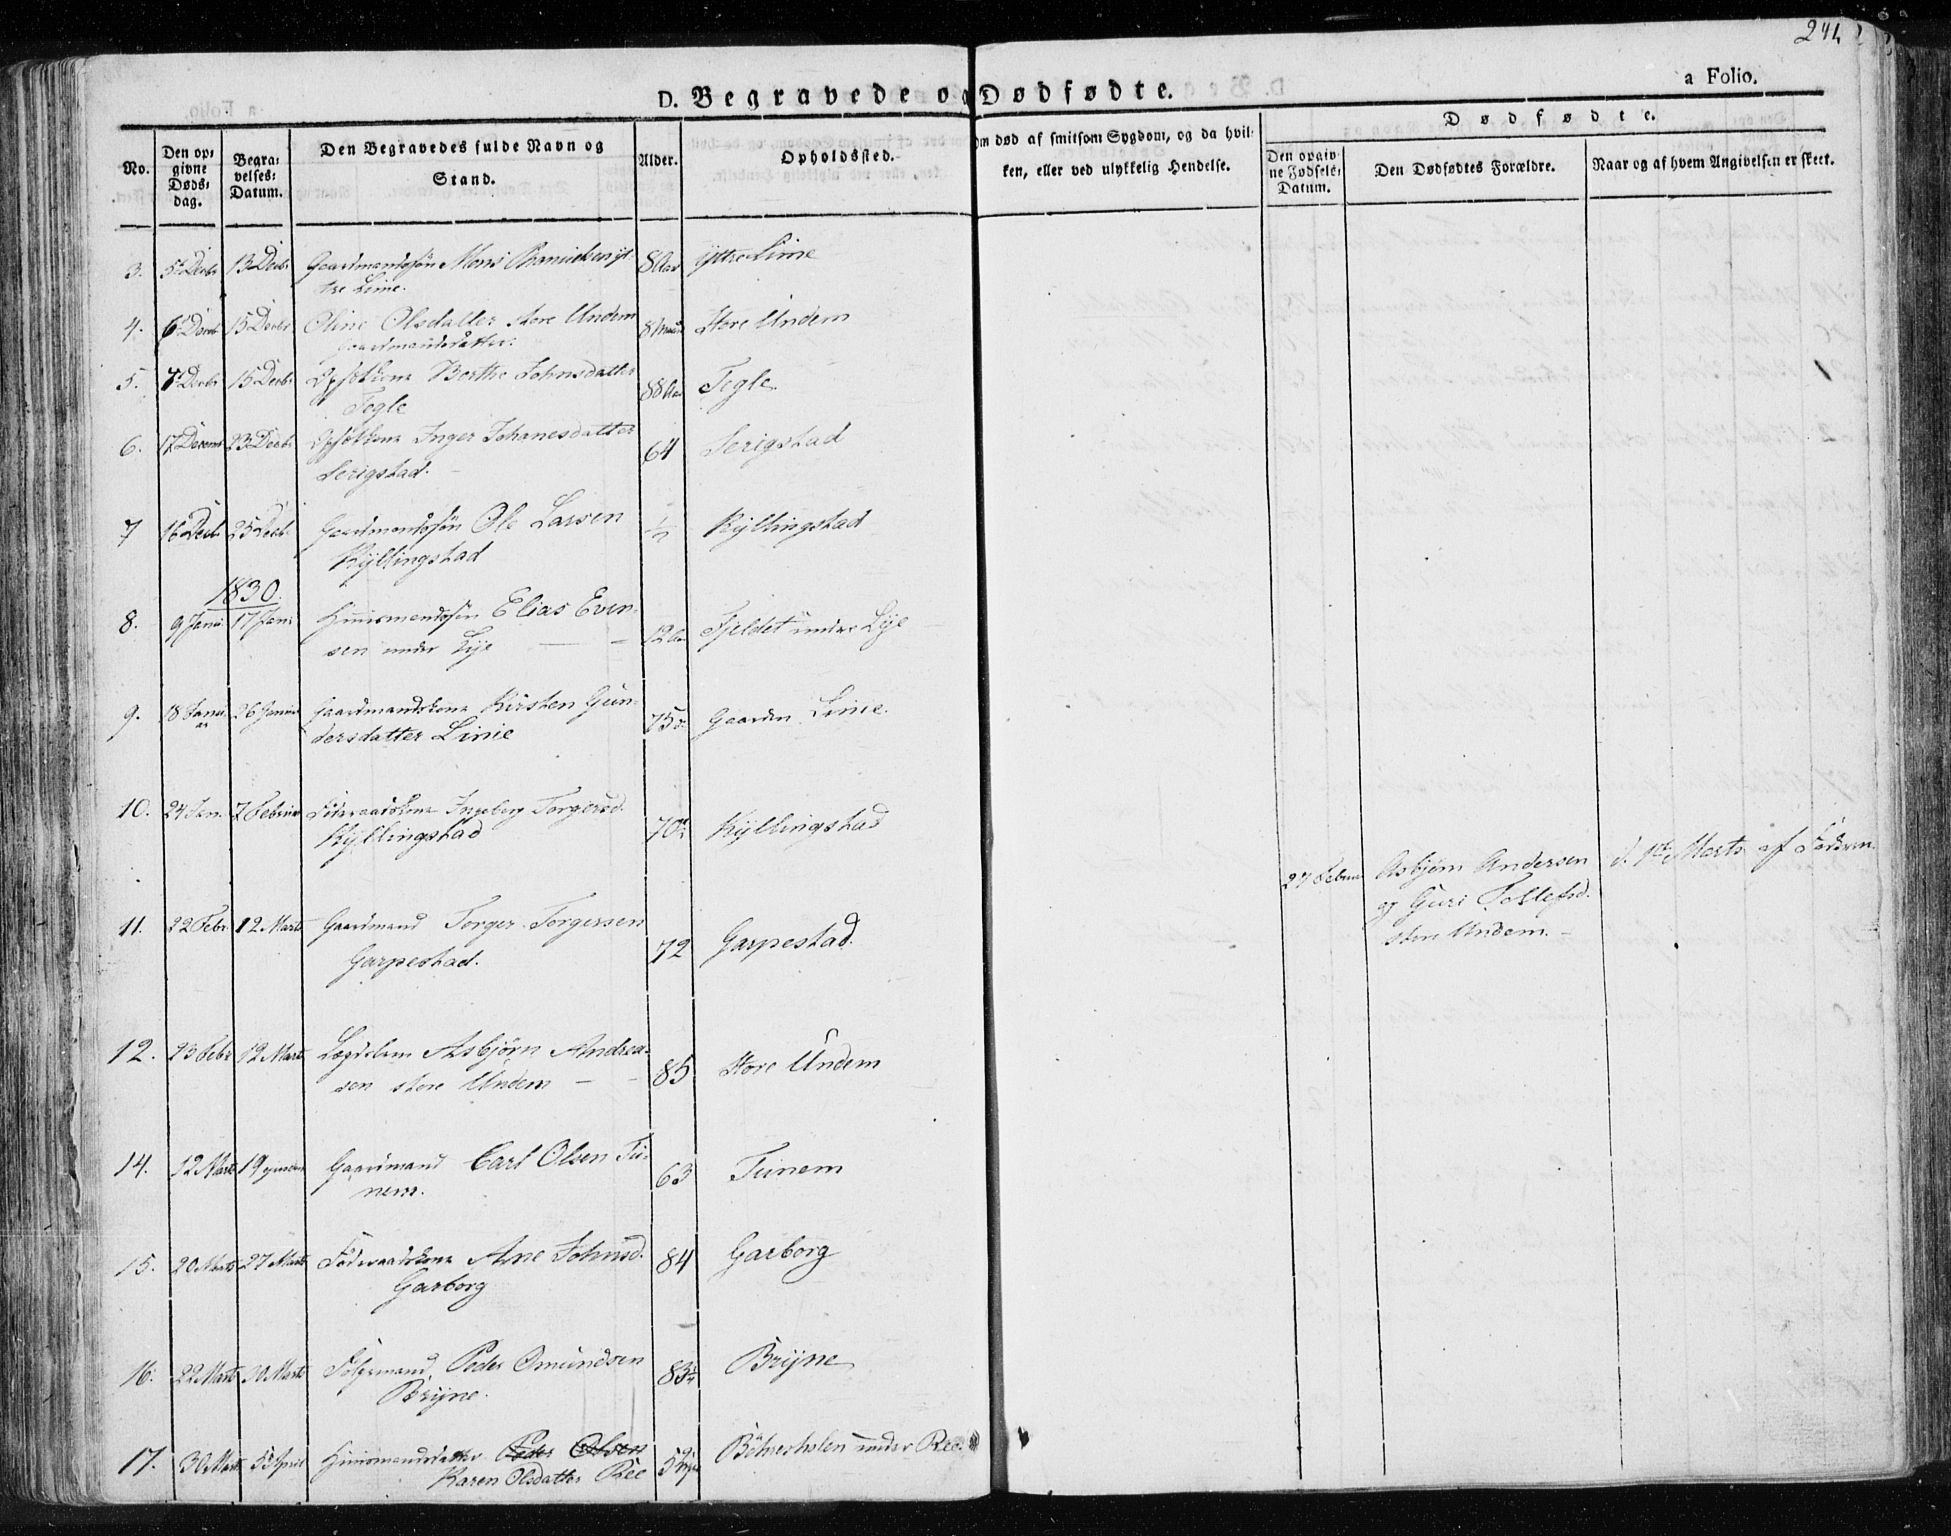 244
a Folio.
D. Begravede og Dødfødte.
No.
Den op⸗
givne
Døds⸗
dag.
Begra⸗
velses⸗
Datum.
Den Begravedes fulde Navn og
Stand.
Alder.
Opholdssted.
Om død af smitsom Sygdom, og da hvil⸗
ken, eller ved ulykkelig Hendelse.
Dødfødte.
Den opgiv⸗
ne Fødsels⸗
Datum.
Den Dødfødtes Forældre.
Naar og af hvem Angivelsen er skeet.
3. 5 Decbr 13 Decbr Gaardmandssøn Mons yt
tre Linie. 8 Aar Yttre Linie
4. 6 Decbr 15 Decbr Oline Olsdatter store Undem
Gaardmandsdatter. 8 store Undem
5. 7 Decbr 15 Decbr Berthe Johnsdatter
Tegle 88 Aar Tegle
6. 17 Decembr 23 Decbr Inger Johanesdatter
Serigstad. 64 Serigstad
7 16 Decbr 25 Decbr Gaardmandssøn Ole Larsen
Kyllingstad Kyllingstad
1830.
8. 9 Janu 17 Janu Huusmandssøn Elias Even⸗
sen under Lye 12 Aar Fjeldet under Lye
9. 18 Janu
ar 26 Januar Gaardmandskone Kirsten Gun⸗
dersdatter Linie 75 Gaarden Linie.
10. 24 Jan. 7 Februar Føderaadskone Ingeborg Torgersd.
Kyllingstad 70 Kyllingstad
27 Februar Asbjørn Andersen
og Guri Tollefsd.
store Undem. d. 1ste Marts af Faderen
11. 22 Febr. 12 Marts Gaardmand Torger Torgersen
Garpestad. 72 Garpestad.
12. 23 Febr 12 Marts Lægdslem Asbjørn Andrea⸗
sen store Undem 85 store Undem
14. 12 Marts 19 Gaardmand Carl Olsen Tu⸗
nem. 63 Tunem
15. 20 Marts 27 Marts Føderaadskone Ane Johnsd.
Garborg 84 Garborg
16. 22 Marts 30 Marts Peder Omundsen
Bryne. 83 Bryne
17. 30 Marts 5 April Huusmandsdatter Peder Olsen
Karen Olsdatter Ree 5 under Ree.